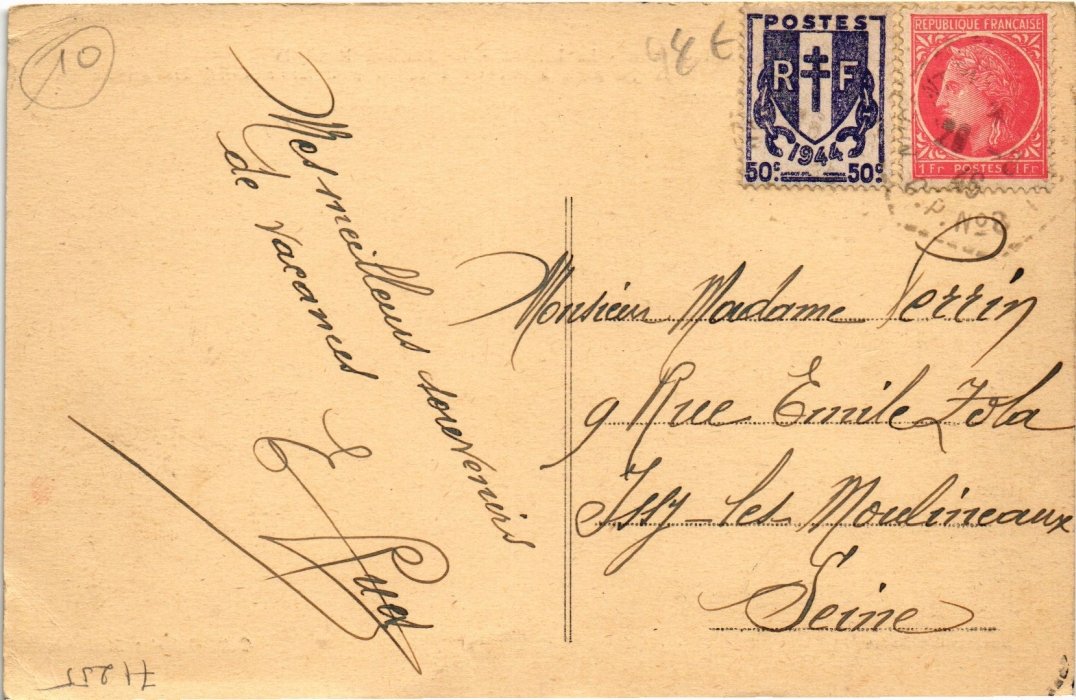 10
POSTES
R F
1944
50c 50c
REPUBLIQUE FRANÇAISE
1Fr POSTES 1Fr
P. No 8
Mes meilleurs souvenirs
de vacances
Monsieur Madame Perrin
9 Rue Emile Zola
Issy-les Moulineaux
Seine
71255